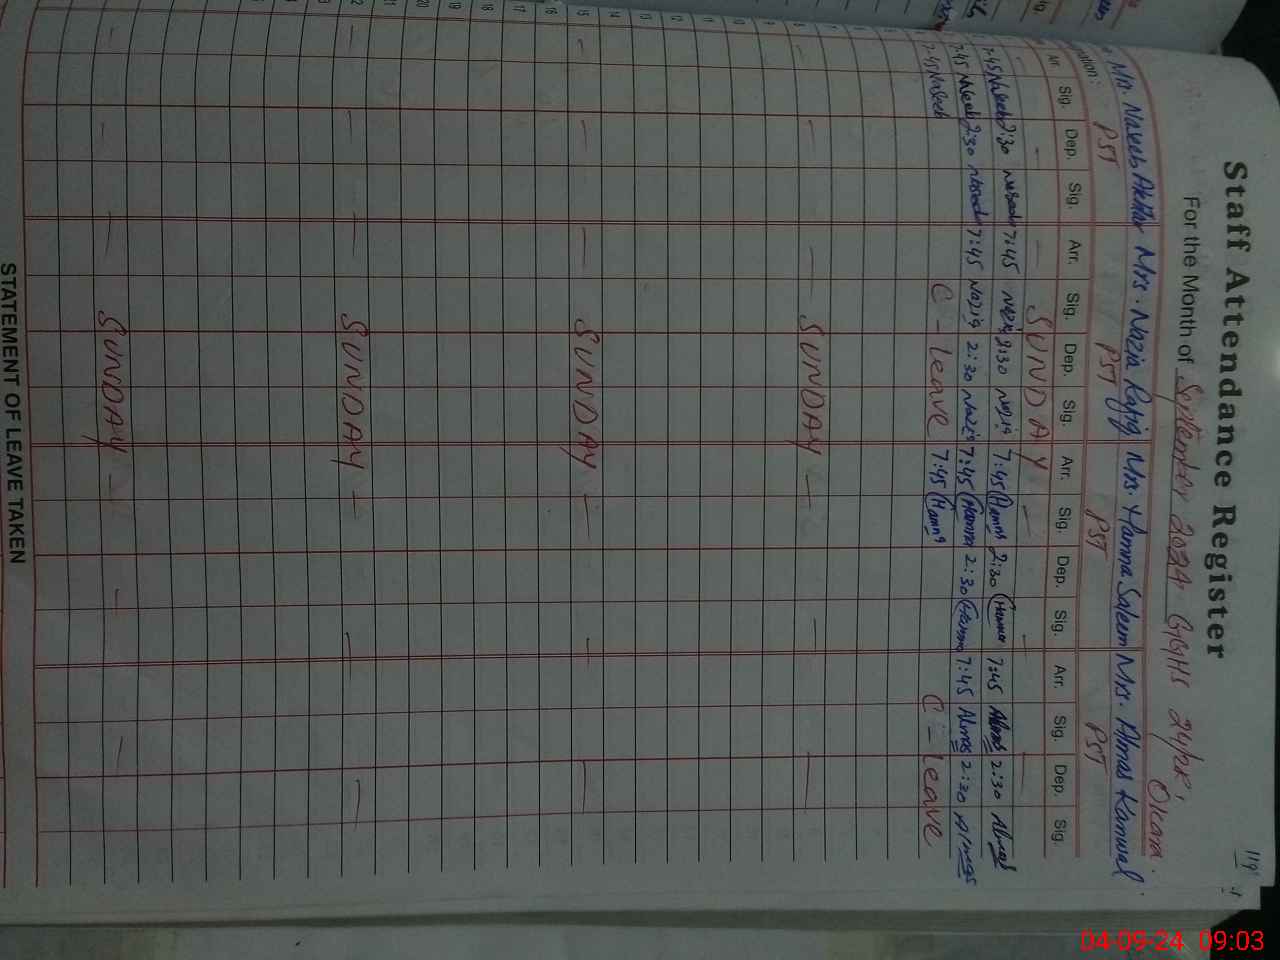 119
Staff Attendance Register
For the Month of September 2024, GGHS 24/2R, Okara
Mrs. Naseeb Akhtar Mrs. Nazia Rafiq Mrs. Hamna Saleem Mrs. Almas Kanwal
PST PST PST PST
Arr. Sig. Dep. Sig. Arr. Sig. Dep. Sig. Arr. Sig. Dep. Sig. Arr. Sig. Dep. Sig.
SUNDAY
7:45 Naseeb 2:30 Naseeb 7:45 Nazia 2:30 Nazia 7:45 Hamna 2:30 Hamna 7:45 Almas 2:30 Almas
7:45 Naseeb 2:30 Naseeb 7:45 Nazia 2:30 Nazia 7:45 Hamna 2:30 Hamna 7:45 Almas 2:30 Almas
7:45 Naseeb C - leave 7:45 Hamna C - leave
8 SUNDAY
9
10
11
12
13
14
15 SUNDAY
16
17
18
19
20
21
22 SUNDAY
SUNDAY
STATEMENT OF LEAVE TAKEN
04-09-24 09:03